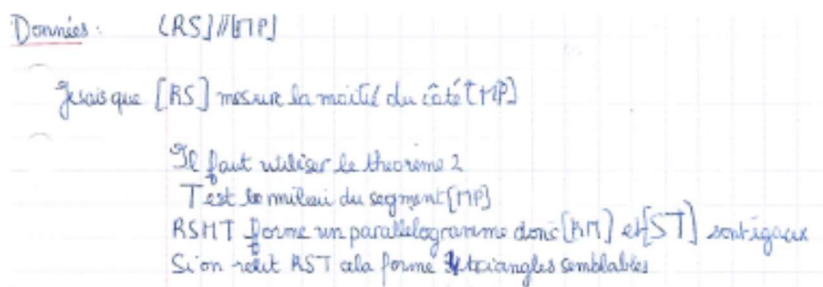 Données : [RS]//[MP]
Je sais que [RS] mesure la moitié du côté [MP]
Il faut utiliser le théorème 2
T est le milieu du segment [MP]
RSMT forme un parallélogramme donc [RM] et [ST] sont égaux
Si on relit RST cela forme 4 triangles semblables